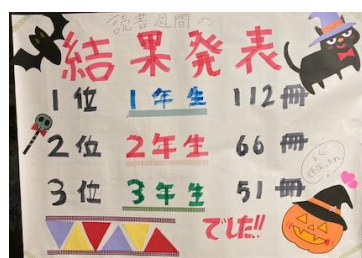 読書週間の
結果発表
1位 1年生 112冊
2位 2年生 66冊
3位 3年生 51冊
でした!!